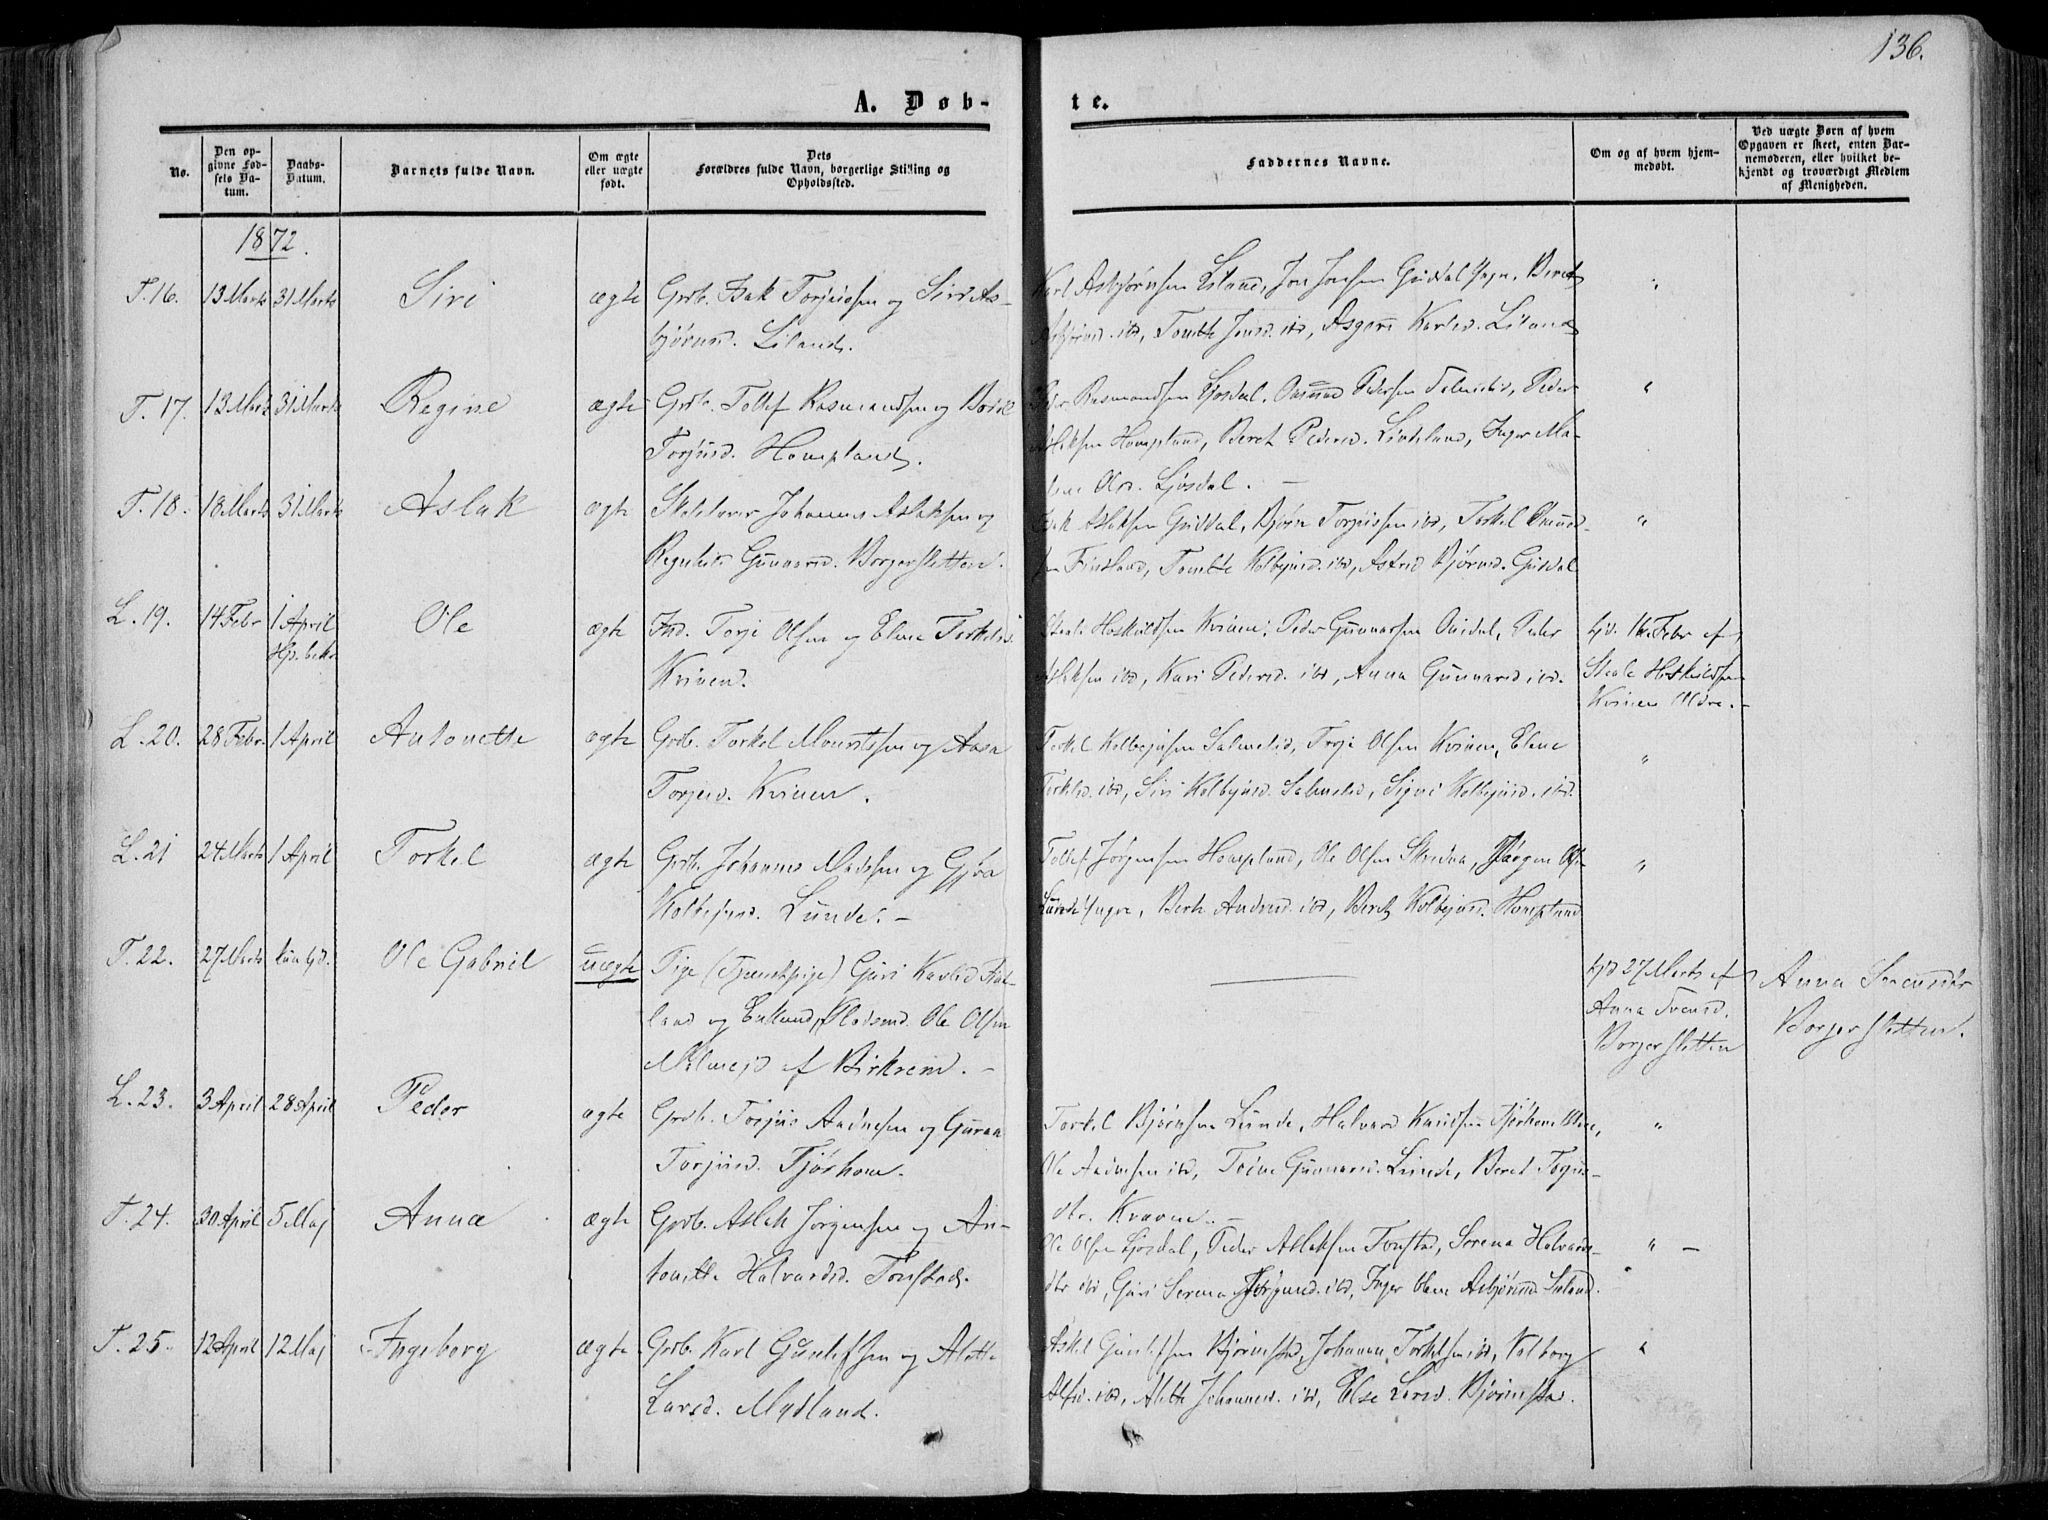 136.
A. Døb-
te.
No.
Den op-
givne Fød-
sels Da-
tum.
Daabs-
Datum.
Barnets fulde Navn.
Om ægte
eller uægte
født.
Dets
Forældres fulde Navn, borgerlige Stilling og
Opholdssted.
Faddernes Navne.
Om og af hvem hjem-
medøbt.
Ved uægte Børn af hvem
Opgaven er skeet, enten Bar-
nemoderen, eller hvilket be-
kjendt og troværdigt Medlem
af Menigheden.
1872.
T. 16. 13 Marts 31 Marts Siri ægte Grdb. Isak Torjussen og Siri As-
bjørnsd. Liland.
Karl Asbjørnsen Liland, Jon Jonsen Guddal Beret
ibd, Tomthe Jonsd. ibd, Asgerd Karlsd. Liland
"
T. 17. 13 Marts 31 Marts Regine ægte Grdb. Tollef Rasmundsen og Bodil
Torjusd. Hompland.
Rasmundsen Ljosdal, Omund Pedersen ibd, Peder
Aslaksen Hompland, Beret Pedersd. Lindeland, Inger Ma-
Olsd. Ljosdal. —
"
T. 18. 18 Marts 31 Marts Aslak ægte Johannes Aslaksen og
Regnhild Gunnarsd. Borgersletten.
Isak Aslaksen Guddal, Bjørn Torjussen ibd, Torkel Omund-
sen Findland, Tomthe Kolbejnsd. ibd, Astrid Bjørnsd. Gusdal
"
L. 19. 14 Febr 1 April
Hjd. bekr
Ole ægte Ind. Torje Olsen og Elene Torkelsd.
Kvinen.
Staale Hoskuldsen Kvinen, Peder Gunnarsen Omdal, Peder
Aslaksen ibd, Kari Pedersd. ibd, Anna Gunnarsd ibd.
hjd. 16 Febr af
Staale Hoskuldsen
Kvinen Øvre. —
L. 20. 28 Febr. 1 April Antonette ægte Grdb. Torkel Mouritssen og Aasa
Torjesd. Kvinen.
Torkel Kolbejnsen Salmelid, Torje Olsen Kvinen, Elene
Torkelsd. ibd, Siri Kolbejnsd. Salmelid, Signi Kolbejnsd. ibd.
"
L. 21 24 Marts 1 April Torkel ægte Grdb. Johannes Madssen og Gjøa
Kolbejnsd. Lunde. —
Tollef Jørgensen Hompland, Ole Olsen Skreaa, Jørgen
Lunde Yngre, Berte Andersd. ibd, Beret Kolbejnsd. Hompland
"
T. 22. 27 Marts kun hjd. Ole Gabriel uægte Pige (Tjenestpige) Guri Karlsd
land og Enkemd. Pladsmd. Ole Olsen
af Birkrem. —
hjd 27 Marts af
Anna Svensd.
Borgersletten
Anna Svensdtr
Borgersletten.
L. 23. 3 April 28 April Peder ægte Grdb. Torjus Aadnesen og Guraa
Torjusd. Tjørhom.
Torkel Bjørnsen Lunde, Halvard Knudsen Tjørhom
Ole Aadnesen ibd, Toine Gunnarsd. Lunde, Beret
dtr. Kvaven. —
"
T. 24. 30 April 5 Maj Anna ægte Grdb. Aslak Jørgensen og An-
tonette Halvardsd. Tonstad.
Ole Olsen Ljosdal, Peder Aslaksen Tonstad, Serena Halvards-
dtr ibd, Guri Serena Jørgensd. ibd, Inger Olene Asbjørnsd.
" —
T. 25. 12 April 12 Maj Ingeborg ægte Grdb. Karl Gunlefsen og Alette
Larsd. Mydland.
Askel Gunlefsen Bjørnestad, Johannes Torkelsen ibd, Valborg
ibd, Alette Johannesd. ibd, Else Larsd. Bjørnestad.
"